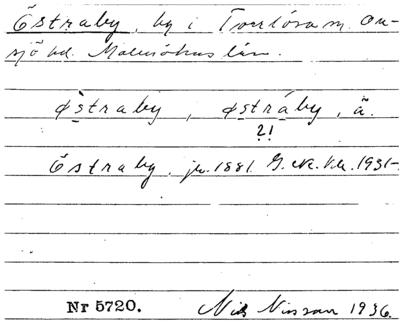 Östraby, by i Torrlösa sn. On-
sjö hd. Malmöhus län.
østraby, østráby, ã.
?!
Östraby, jr. 1881. G. 1931-
Nr 5720. Nils Nilsson 1936.